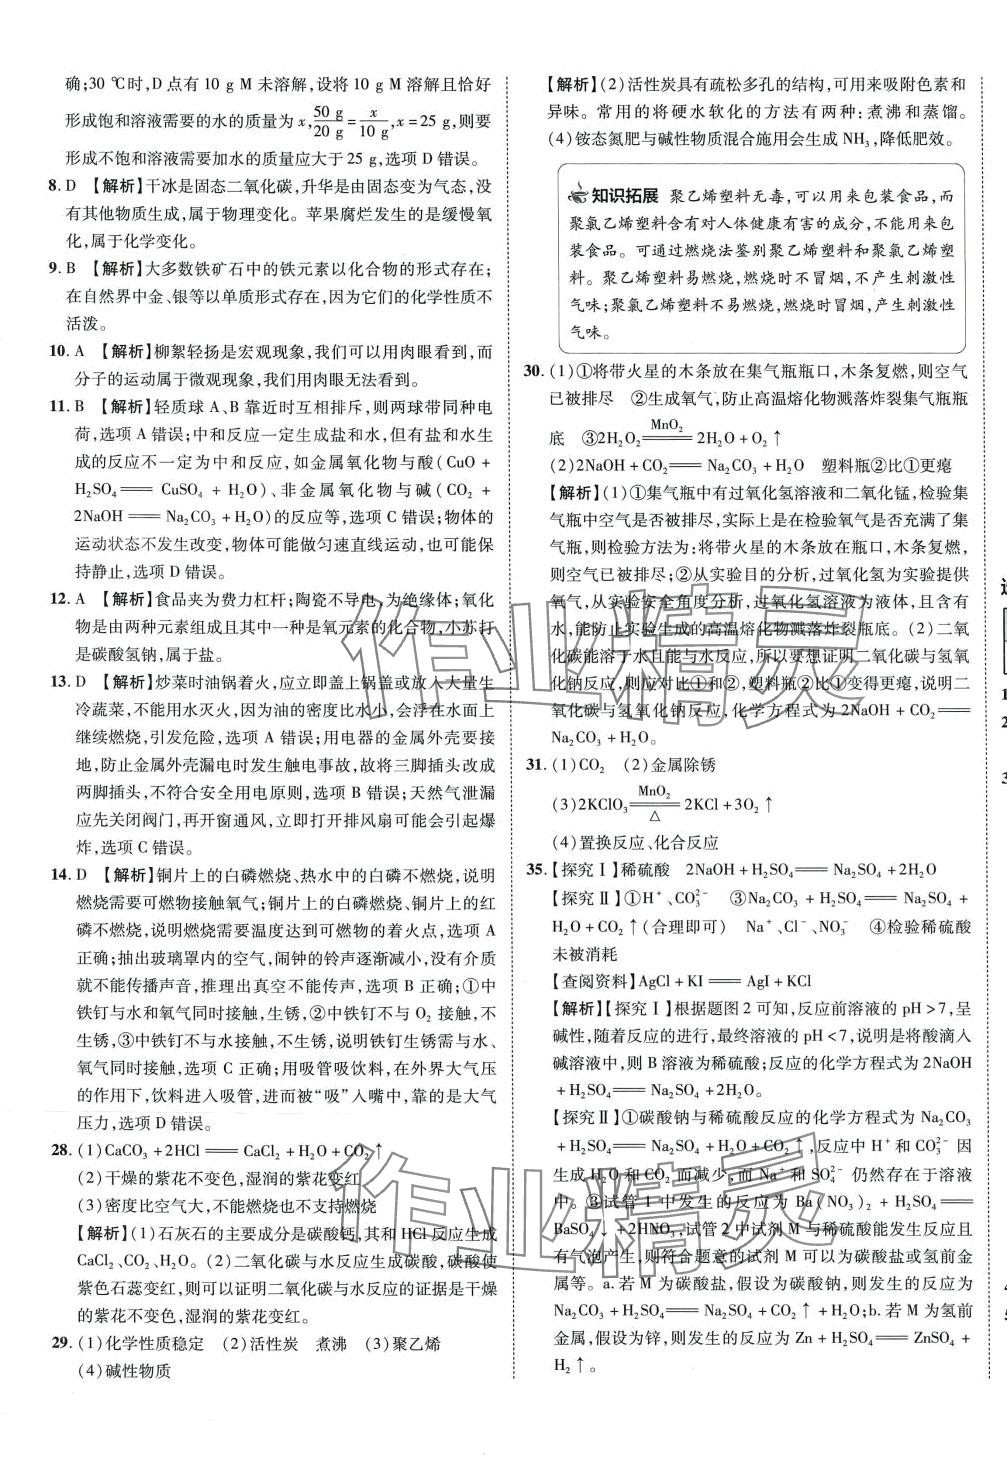 确;30 ℃时,D 点有 10 g M 未溶解,设将 10 g M 溶解且恰好
形成饱和溶液需要的水的质量为 x, 50 g/20 g = x/10 g, x = 25 g,则要
形成不饱和溶液需要加水的质量应大于 25 g,选项 D 错误。
8. D 【解析】干冰是固态二氧化碳,升华是由固态变为气态,没
有其他物质生成,属于物理变化。苹果腐烂发生的是缓慢氧
化,属于化学变化。
9. B 【解析】大多数铁矿石中的铁元素以化合物的形式存在;
在自然界中金、银等以单质形式存在,因为它们的化学性质不
活泼。
10. A 【解析】柳絮轻扬是宏观现象,我们可以用肉眼看到,而
分子的运动属于微观现象,我们用肉眼无法看到。
11. B 【解析】轻质球 A、B 靠近时互相排斥,则两球带同种电
荷,选项 A 错误;中和反应一定生成盐和水,但有盐和水生
成的反应不一定为中和反应,如金属氧化物与酸(CuO +
H₂SO₄══CuSO₄ + H₂O)、非金属氧化物与碱(CO₂ +
2NaOH══Na₂CO₃ + H₂O)的反应等,选项 C 错误;物体的
运动状态不发生改变,物体可能做匀速直线运动,也可能保
持静止,选项 D 错误。
12. A 【解析】食品夹为费力杠杆;陶瓷不导电,为绝缘体;氧化
物是由两种元素组成且其中一种是氧元素的化合物,小苏打
是碳酸氢钠,属于盐。
13. D 【解析】炒菜时油锅着火,应立即盖上锅盖或放入大量生
冷蔬菜,不能用水灭火,因为油的密度比水小,会浮在水面上
继续燃烧,引发危险,选项 A 错误;用电器的金属外壳要接
地,防止金属外壳漏电时发生触电事故,故将三脚插头改成
两脚插头,不符合安全用电原则,选项 B 错误;天然气泄漏
应先关闭阀门,再开窗通风,立即打开排风扇可能会引起爆
炸,选项 C 错误。
14. D 【解析】铜片上的白磷燃烧、热水中的白磷不燃烧,说明
燃烧需要可燃物接触氧气;铜片上的白磷燃烧、铜片上的红
磷不燃烧,说明燃烧需要温度达到可燃物的着火点,选项 A
正确;抽出玻璃罩内的空气,闹钟的铃声逐渐减小,没有空气
就不能传播声音,推理出真空不能传声,选项 B 正确;①中
铁钉与水和氧气同时接触,生锈,②中铁钉不与 O₂ 接触,不
生锈,③中铁钉不与水接触,不生锈,说明铁钉生锈需与水、
氧气同时接触,选项 C 正确;用吸管吸饮料,在外界大气压
的作用下,饮料进入吸管,进而被“吸”入嘴中,靠的是大气
压力,选项 D 错误。
28. (1)CaCO₃ + 2HCl══CaCl₂ + H₂O + CO₂↑
(2)干燥的紫花不变色,湿润的紫花变红
(3)密度比空气大,不能燃烧也不支持燃烧
【解析】(1)石灰石的主要成分是碳酸钙,其和 HCl 反应生成
CaCl₂、CO₂、H₂O。(2)二氧化碳与水反应生成碳酸,碳酸使
紫色石蕊变红,则可以证明二氧化碳与水反应的证据是干燥
的紫花不变色,湿润的紫花变红。
29. (1)化学性质稳定 (2)活性炭 煮沸 (3)聚乙烯
(4)碱性物质
【解析】(2)活性炭具有疏松多孔的结构,可用来吸附色素和
异味。常用的将硬水软化的方法有两种:煮沸和蒸馏。
(4)铵态氮肥与碱性物质混合施用会生成 NH₃,降低肥效。
知识拓展 聚乙烯塑料无毒,可以用来包装食品,而
聚氯乙烯塑料含有对人体健康有害的成分,不能用来包
装食品。可通过燃烧法鉴别聚乙烯塑料和聚氯乙烯塑
料。聚乙烯塑料易燃烧,燃烧时不冒烟,不产生刺激性
气味;聚氯乙烯塑料不易燃烧,燃烧时冒烟,产生刺激性
气味。
30. (1)①将带火星的木条放在集气瓶瓶口,木条复燃,则空气
已被排尽 ②生成氧气,防止高温熔化物溅落炸裂集气瓶瓶
底 ③2H₂O₂ ══(MnO₂) 2H₂O + O₂↑
(2)2NaOH + CO₂══Na₂CO₃ + H₂O 塑料瓶②比①更瘪
【解析】(1)①集气瓶中有过氧化氢溶液和二氧化锰,检验集
气瓶中空气是否被排尽,实际上是在检验氧气是否充满了集
气瓶,则检验方法为:将带火星的木条放在瓶口,木条复燃,
则空气已被排尽;②从实验目的分析,过氧化氢为实验提供
氧气,从实验安全角度分析,过氧化氢溶液为液体,且含有
水,能防止实验生成的高温熔化物溅落炸裂瓶底。(2)二氧
化碳能溶于水且能与水反应,所以要想证明二氧化碳与氢氧
化钠反应,则应对比①和②,塑料瓶②比①变得更瘪,说明二
氧化碳与氢氧化钠反应,化学方程式为 2NaOH + CO₂══
Na₂CO₃ + H₂O。
31. (1)CO₂ (2)金属除锈
(3)2KClO₃ ══(MnO₂/△) 2KCl + 3O₂↑
(4)置换反应、化合反应
35. 【探究Ⅰ】稀硫酸 2NaOH + H₂SO₄══Na₂SO₄ + 2H₂O
【探究Ⅱ】①H⁺、CO₃²⁻ ③Na₂CO₃ + H₂SO₄══Na₂SO₄ +
H₂O + CO₂↑(合理即可) Na⁺、Cl⁻、NO₃⁻ ④检验稀硫酸
未被消耗
【查阅资料】AgCl + KI══AgI + KCl
【解析】【探究Ⅰ】根据题图 2 可知,反应前溶液的 pH > 7,呈
碱性,随着反应的进行,最终溶液的 pH < 7,说明是将酸滴入
碱溶液中,则 B 溶液为稀硫酸;反应的化学方程式为 2NaOH
+ H₂SO₄══Na₂SO₄ + 2H₂O。
【探究Ⅱ】①碳酸钠与稀硫酸反应的化学方程式为 Na₂CO₃
+ H₂SO₄══Na₂SO₄ + H₂O + CO₂↑,反应中 H⁺ 和 CO₃²⁻ 因
生成 H₂O 和 CO₂ 而减少,而 Na⁺ 和 SO₄²⁻ 仍然存在于溶液
中。③试管 1 中发生的反应为 Ba(NO₃)₂ + H₂SO₄══
BaSO₄↓ + 2HNO₃,试管 2 中试剂 M 与稀硫酸能发生反应且
有气泡产生,则符合题意的试剂 M 可以为碳酸盐或氢前金
属等。a. 若 M 为碳酸盐,假设为碳酸钠,则发生的反应为
Na₂CO₃ + H₂SO₄══Na₂SO₄ + H₂O + CO₂↑;b. 若 M 为氢前
金属,假设为锌,则发生的反应为 Zn + H₂SO₄══ZnSO₄ +
H₂↑。
作业精灵
作业精灵